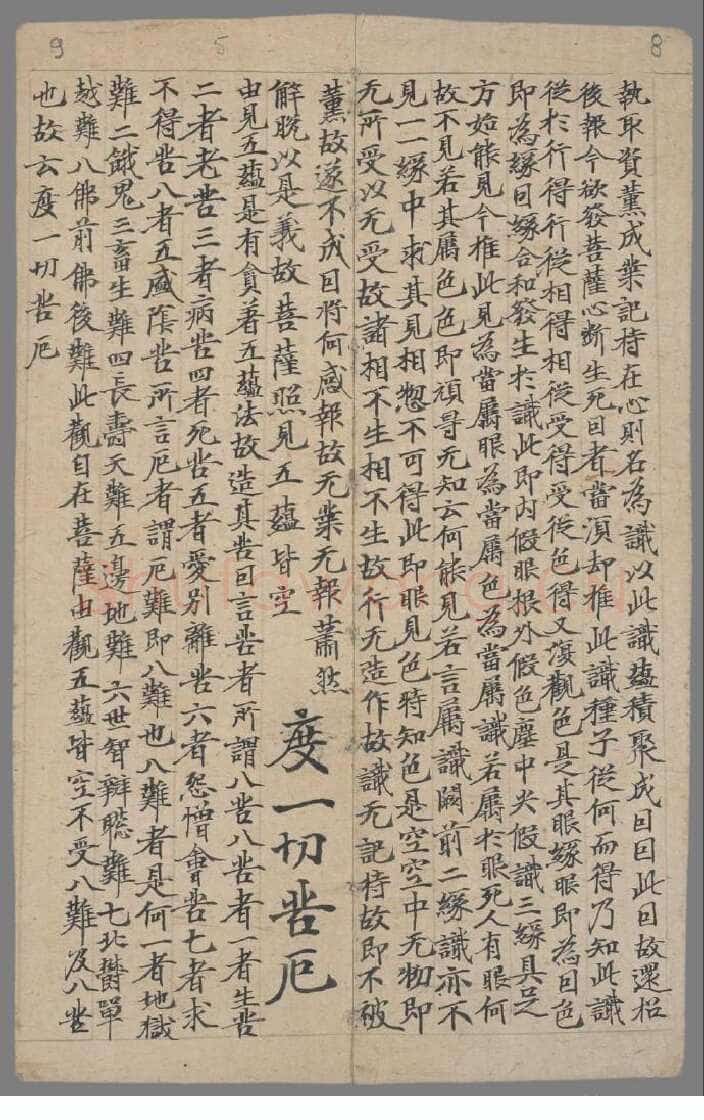 執取資薰成業記持在心則名為識以此識蘊積聚成因因此因故還招
後報今欲發菩薩心斷生死因者當須却推此識種子從何而得乃知此識
從於行得行從相得相從受得受從色得又復觀色是其眼緣眼即為因色
即為緣因緣合和發生於識此即內假眼根外假色塵中央假識三緣具足
方始能見今推此見為當屬眼為當屬色為當屬識若屬於眼死人有眼何
故不見若其屬色色即頑㝵无知云何能見若言屬識闕前二緣識亦不
見一一緣中求其見相惣不可得此即眼見色時知色是空空中无物即
无所受以无受故諸相不生相不生故行无造作故識无記持故即不被
薰故遂不成因將何感報故无業无報蕭然
解脫以是義故菩薩照見五蘊皆空
度一切苦厄
由見五蘊是有貪著五蘊法故造其苦因言苦者所謂八苦八苦者一者生苦
二者老苦三者病苦四者死苦五者愛別離苦六者怨憎會苦七者求
不得苦八者五盛陰苦所言厄者謂厄難即八難也八難者是何一者地獄
難二餓鬼三畜生難四長壽天難五邊地難六世智辯聦難七北欝單
越難八佛前佛後難此觀自在菩薩由觀五蘊皆空不受八難及八苦
也故云度一切苦厄
9
5
8